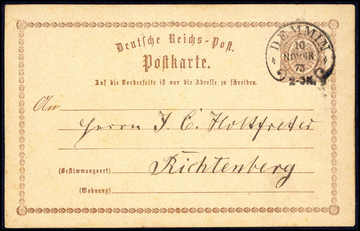 Deutsche Reichs-Post.
Postkarte.
DEMMIN
10
NOVBR
73
2-3N
Auf die Vorderseite ist nur die Adresse zu schreiben.
An
Herrn J. C. Holtfreter
(Bestimmungsort)
Richtenberg
(Wohnung)